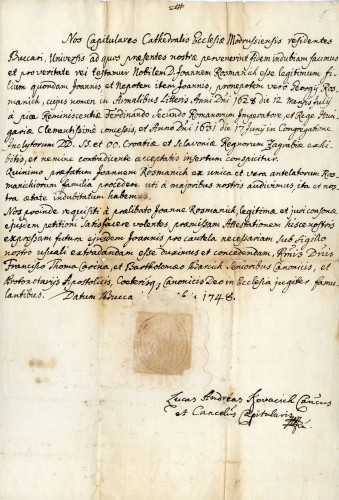 Nos Capitulares Cathedralis Ecclesiæ Modrussiensis residentes
Buccari, Universis ad quos præsentes nostræ pervenerint fidem indubiam facimus
et pro veritate rei testamur Nobilem D. Joannem Rosmanich esse legitimum fi-
lium quondam Joannis et Nepotem item Joannis, pronepotem vero Georgij Ros-
manich, cujus nomen in Armalibus Litteris Anni Dni 1628 die 12 Mensis Julij
à piæ Reminiscentiæ Ferdinando Secundo Romanorum Imperatore, et Rege Hun-
gariæ Clementissime concessis, et Anno Dni 1631 die 17 Junij in Congregatione
Inclytorum DD. SS. et OO. Croatiæ et Sclavoniæ Regnorum Zagrabiæ exhi-
bitis, et nemine contradicente acceptatis insertum conspicitur.
Quinimo præfatum Joannem Rosmanich ex unica et vera antelatorum Ros-
manichiorum familia procedere uti à majoribus nostris audivimus, ita et no-
stra ætate indubitatum habemus.
Nos proinde requisiti à prælibato Joanne Rosmanich, legitimæ et juri consonæ
ejusdem petitioni satisfacere volentes præmissam Attestationem hisce nostris
expressam futura ejusdem Joannis pro cautela necessariam sub sigillo
nostro usuali extradandam esse duximus et concedendam.
Francisco Thoma et Bartholomæo Senioribus Canonicis, et
Protonotarijs Apostolicis, Cæterisq; Canonicis Deo in Ecclesia jugiter famu-
lantibus. Datum 1748.
Lucas Andreas Kovacich Cancus
et Cancelus Capitularis